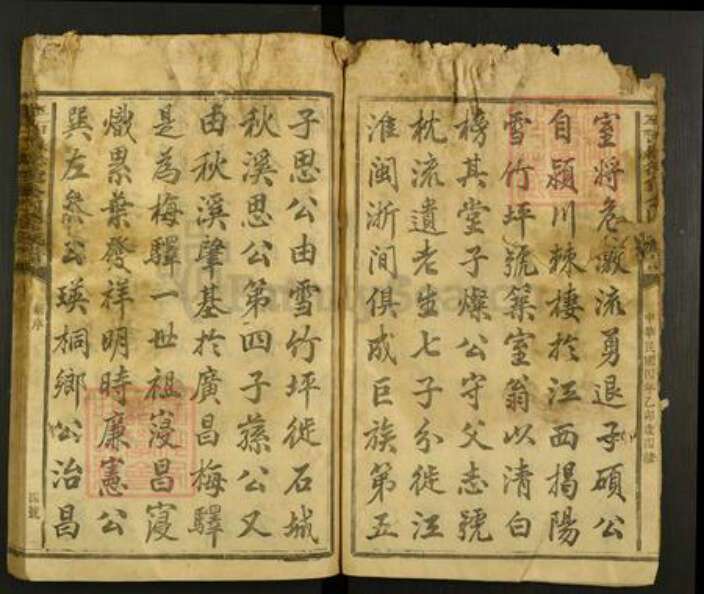 室將危激流勇退子碩公
自潁川棘棲於江西揭陽
雪竹坪號築室翁以清白
榜其堂子燦公守父志號
枕流遺老生七子分徙江
淮閩浙间俱成巨族第五
中華民國四年乙卯歲
子思公由雪竹坪徙石城
秋溪思公第四子蓀公又
由秋溪肇基於廣昌梅驛
是為梅驛一世祖寖昌寖
熾累葉發祥明時廉憲公
巽左叅公瑛桐鄉公治昌
序